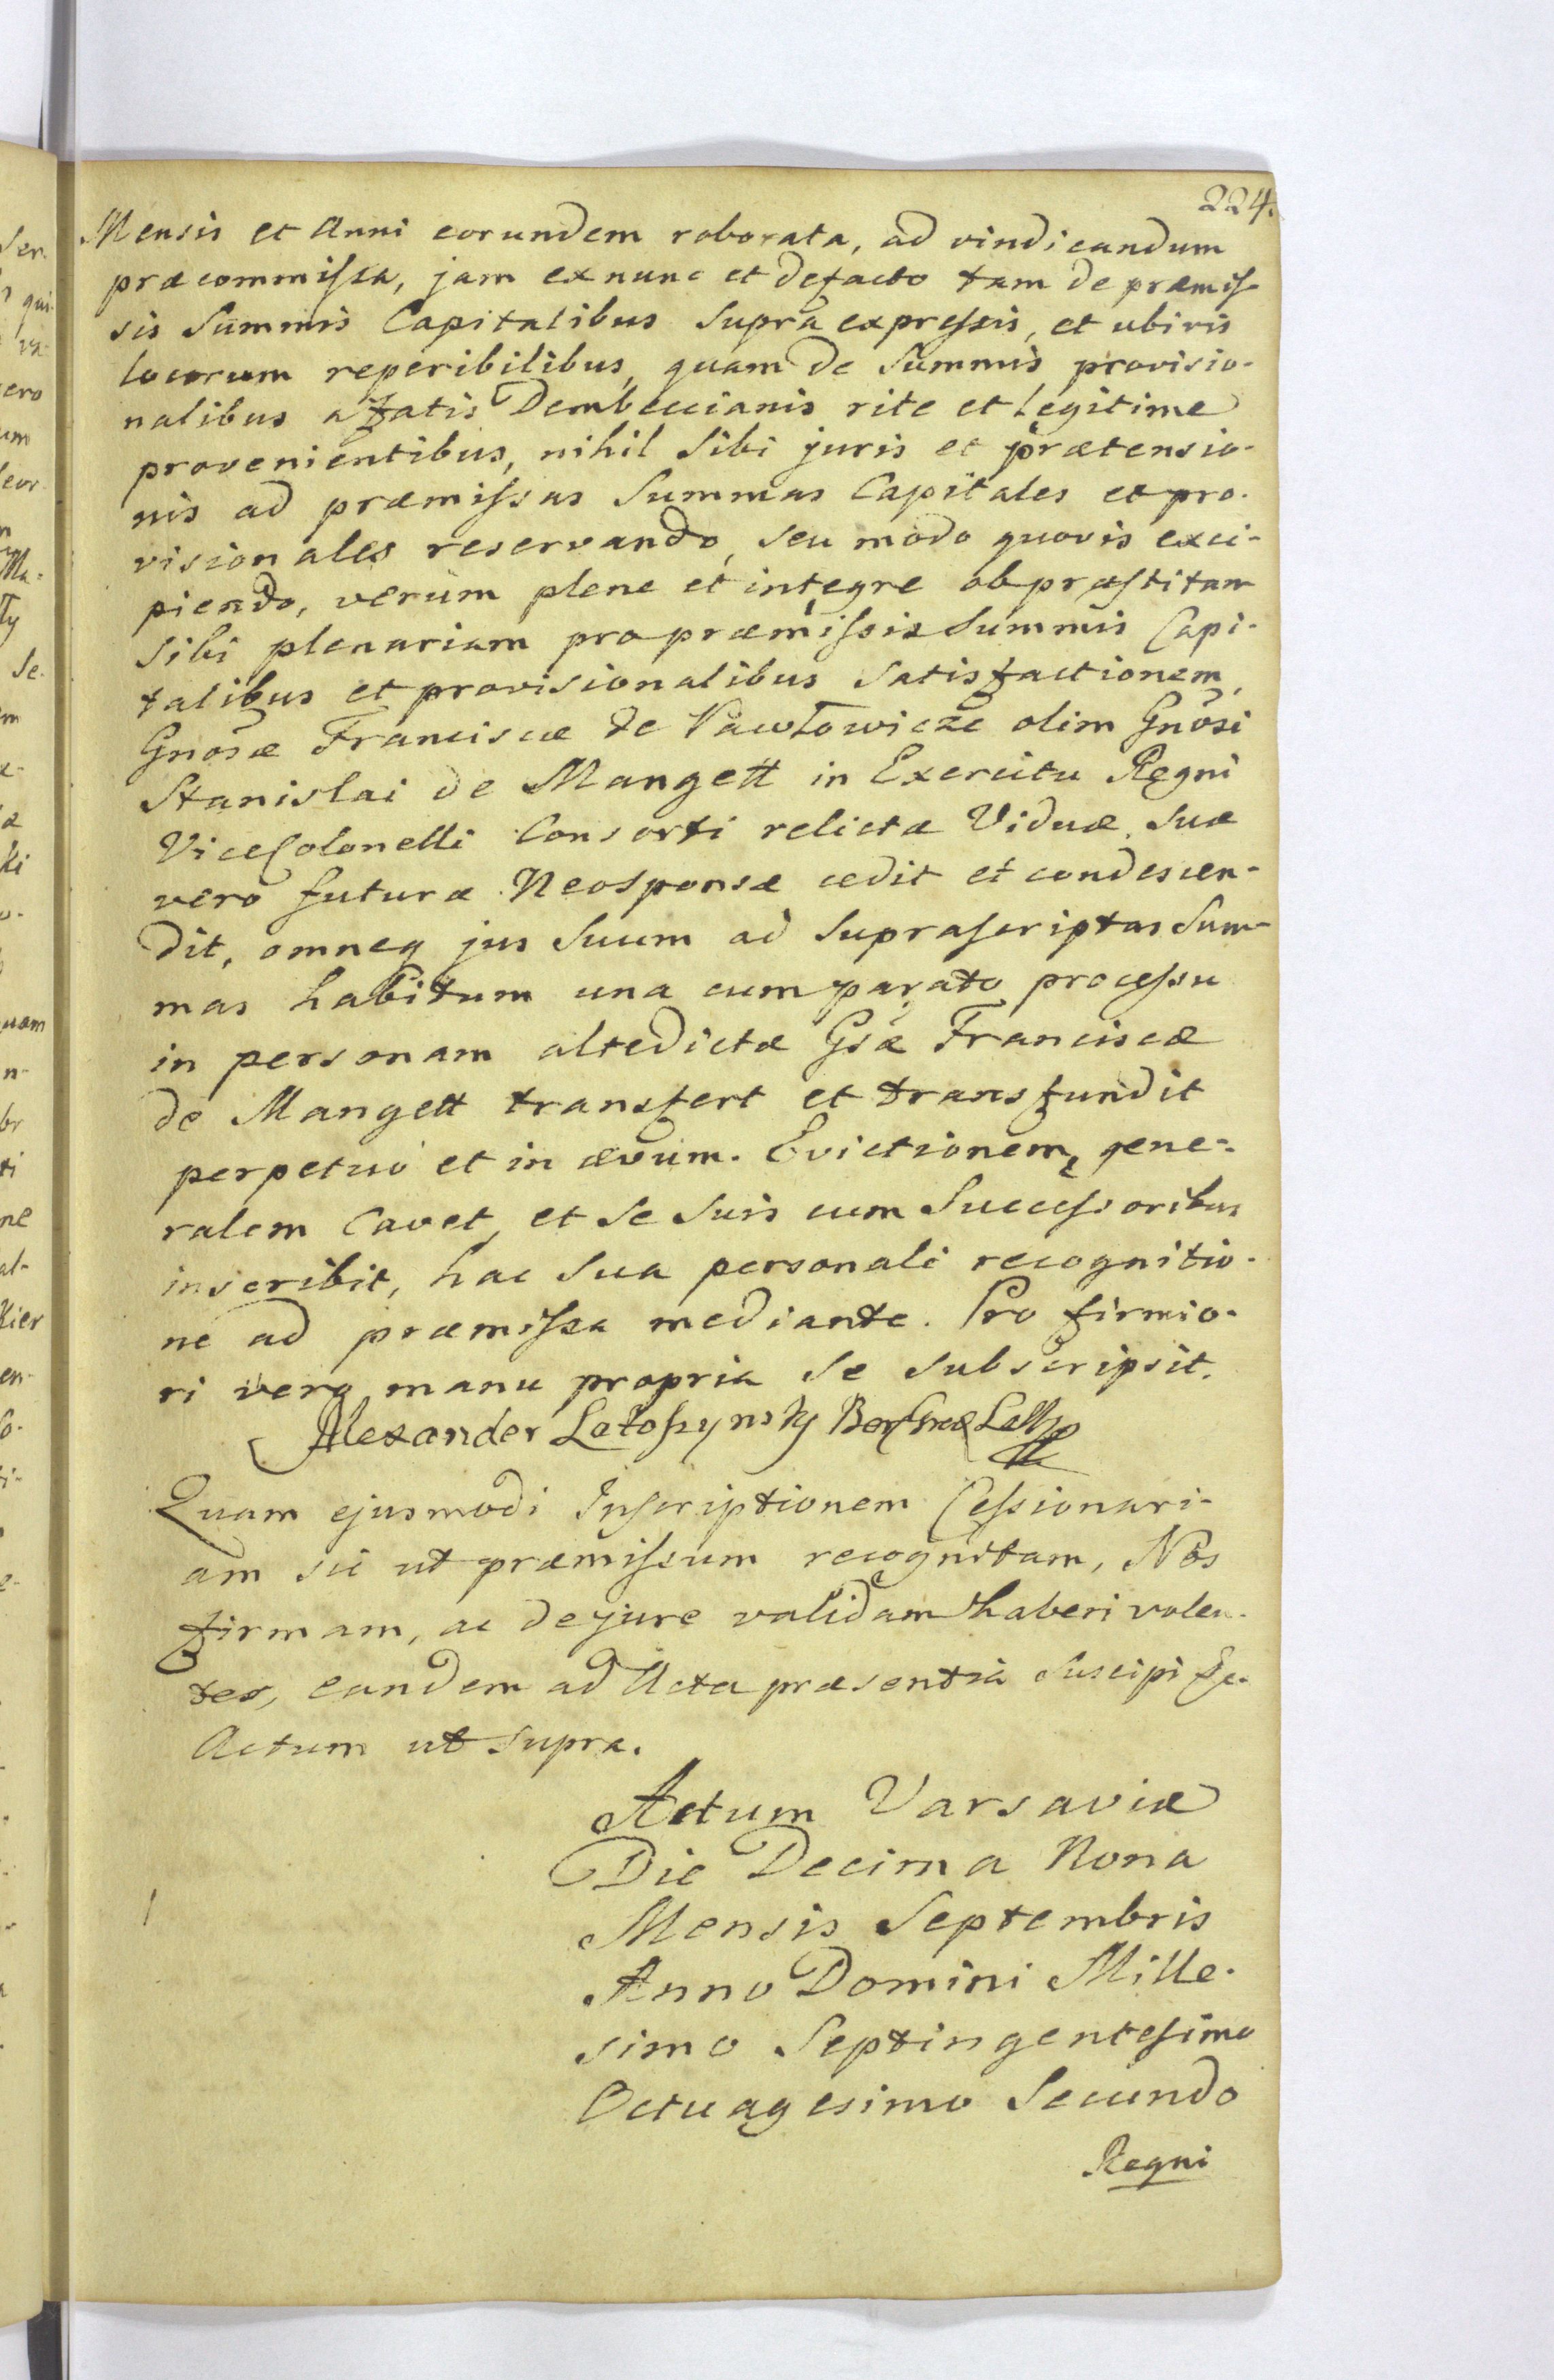 224.
Mensis et Anni eorundem roborata, ad vindicandum
præcommissa, jam exnunc et defacto tam de præmis-
sis Summis Capitalibus Supra expressis, et ubivis
locorum reperibilibus, quam de Summis provisio-
nalibus afatis Dembeccianis rite et legitime
provenientibus, nihil Sibi juris et prætensio-
nis ad præmissas Summas Capitales et pro-
visionales reservando, seu modo quovis exci-
piendo, verùm plene et integre ob præstitam
Sibi plenariam pro præmissis Summis Capi-
talibus et provisionalibus Satisfactionem,
Gnosæ Franciscæ de Pawłowicze olim Gnosi
Stanislai de Mangett in Exercitu Regni
ViceColonelli Consorti relictæ Viduæ, Suæ
vero futuræ Neosponsæ cedit et condescen-
dit, omneq jus Suum ad Suprascriptas Sum-
mas habitum una cum parato processu
in personam altedictæ Gsæ Franciscæ
de Mangett transfert et transfundit
perpetuò et in ævum. Evictionemq gene-
ralem Cavet, et Se Suis cum Successoribus
inscribit, hac Sua personali recognitio-
ne ad præmissa mediante. Pro firmio-
ri vero manu propria Se Subscripsit.
Alexander Latoszynsky
Quam ejusmodi Inscriptionem Cessionari-
am sic ut præmissum recognitam, Nos
firmam, ac dejure validam haberi volen-
tes, eandem ad Acta præsentia Suscipi &c.
Actum ut Supra.
Actum Varsaviæ
Die Decima Nona
Mensis Septembris
Anno Domini Mille-
simo Septingentesimo
Octuagesimo Secundo
Regni